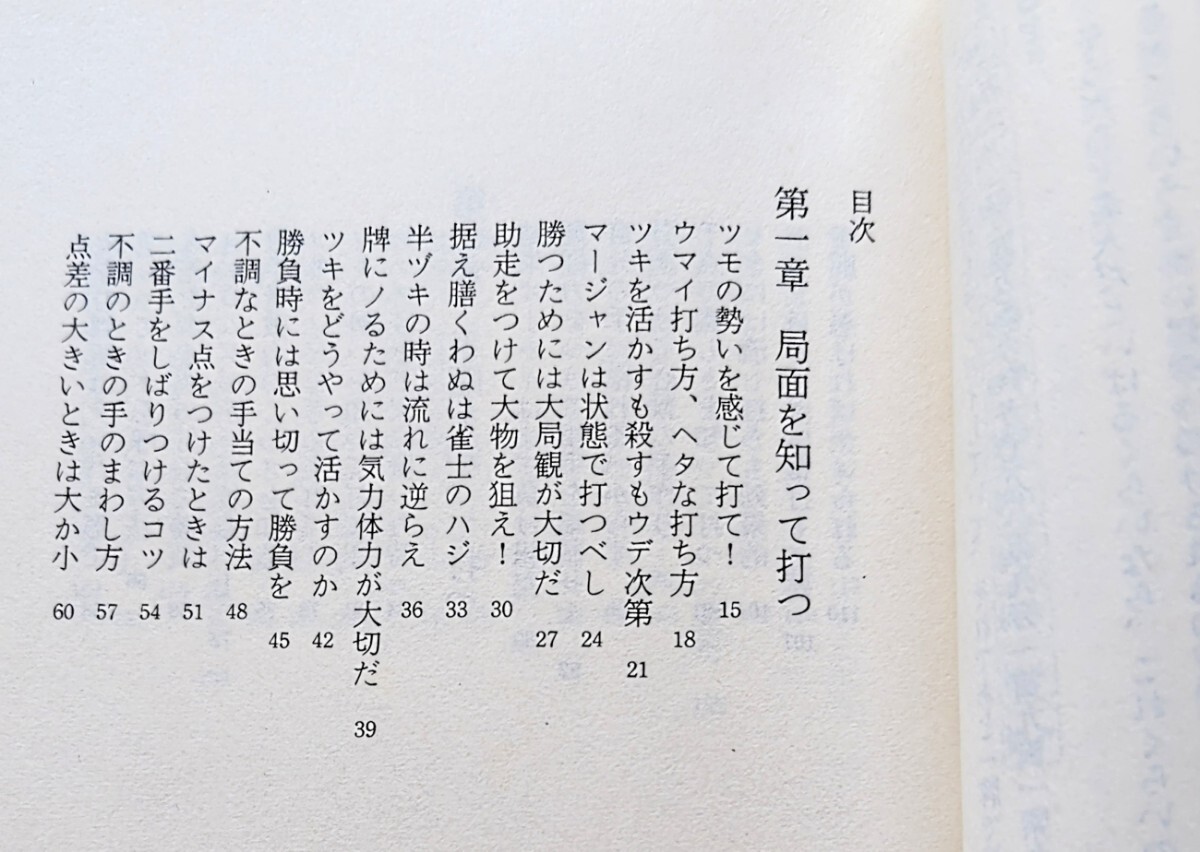 目次
第一章　局面を知って打つ
ツモの勢いを感じて打て！　15
ウマイ打ち方、ヘタな打ち方　18
ツキを活かすも殺すもウデ次第　21
マージャンは状態で打つべし　24
勝つためには大局観が大切だ　27
助走をつけて大物を狙え！　30
据え膳くわぬは雀士のハジ　33
半ヅキの時は流れに逆らえ　36
牌にノるためには気力体力が大切だ　39
ツキをどうやって活かすのか　42
勝負時には思い切って勝負を　45
不調なときの手当ての方法　48
マイナス点をつけたときは　51
二番手をしばりつけるコツ　54
不調のときの手のまわし方　57
点差の大きいときは大か小　60